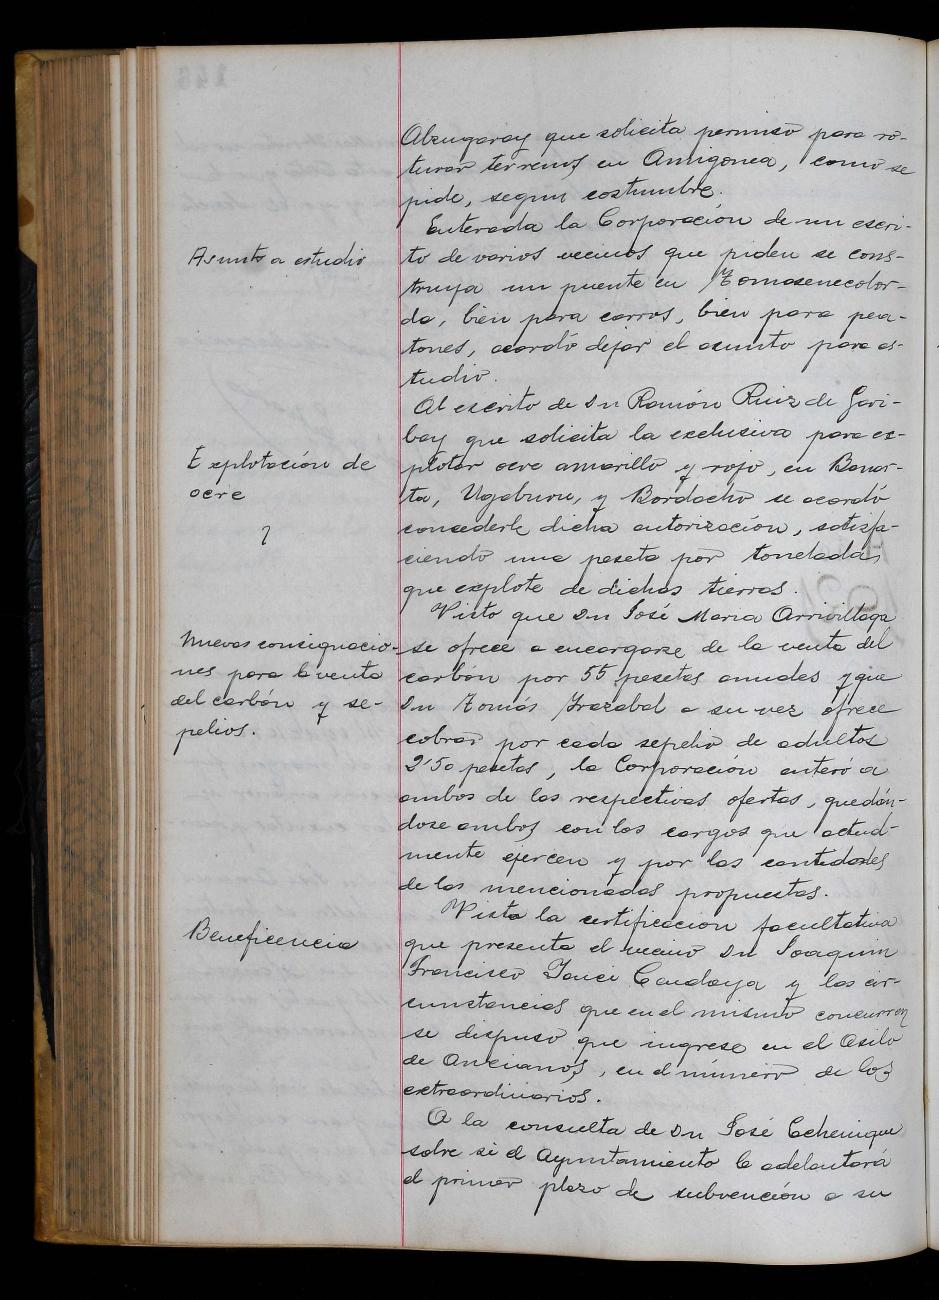 Alzugaray que solicita permiso para ro-
turar terrenos en Amigonea, como se
pide, segun costumbre.
Enterada la Corporación de un escri-
Asunto a estudio
to de varios vecinos que piden se cons-
truya un puente en
da, bien para carros, bien para pea-
tones, acordó dejar el asunto para es-
tudio.
Al escrito de Dn Ramón Ruiz de Gari-
bay que solicita la exclusiva para ex-
Explotación de
ocre
?
plotar ocre amarillo y rojo, en Banas-
ta, Ugaburu, y Bordacho se acordó
concederle dicha autorización, satisfa-
ciendo una peseta por tonelada,
que explote de dichas tierras.
Visto que Dn José Maria Arrivillaga
Nuevas consignacio-
nes para la venta
del carbón y se-
pelios.
se ofrece a encargarse de la venta del
carbón por 55 pesetas anuales y que
Dn Tomás Yrazabal a su vez ofrece
cobrar por cada sepelio de adultos
2'50 pesetas, la Corporación enteró a
ambos de las respectivas ofertas, quedán-
dose ambos con los cargos que actual-
mente ejercen y por las cantidades
de las mencionadas propuestas.
Vista la certificacion facultativa
Beneficencia
que presenta el vecino Dn Joaquin
Francisco y las cir-
cunstancias que en el mismo concurren
se dispuso que ingrese en el Asilo
de Ancianos, en el número de los
extraordinarios.
A la consulta de Dn José Echenique
sobre si el Ayuntamiento le adelantará
el primer plazo de subvención a su